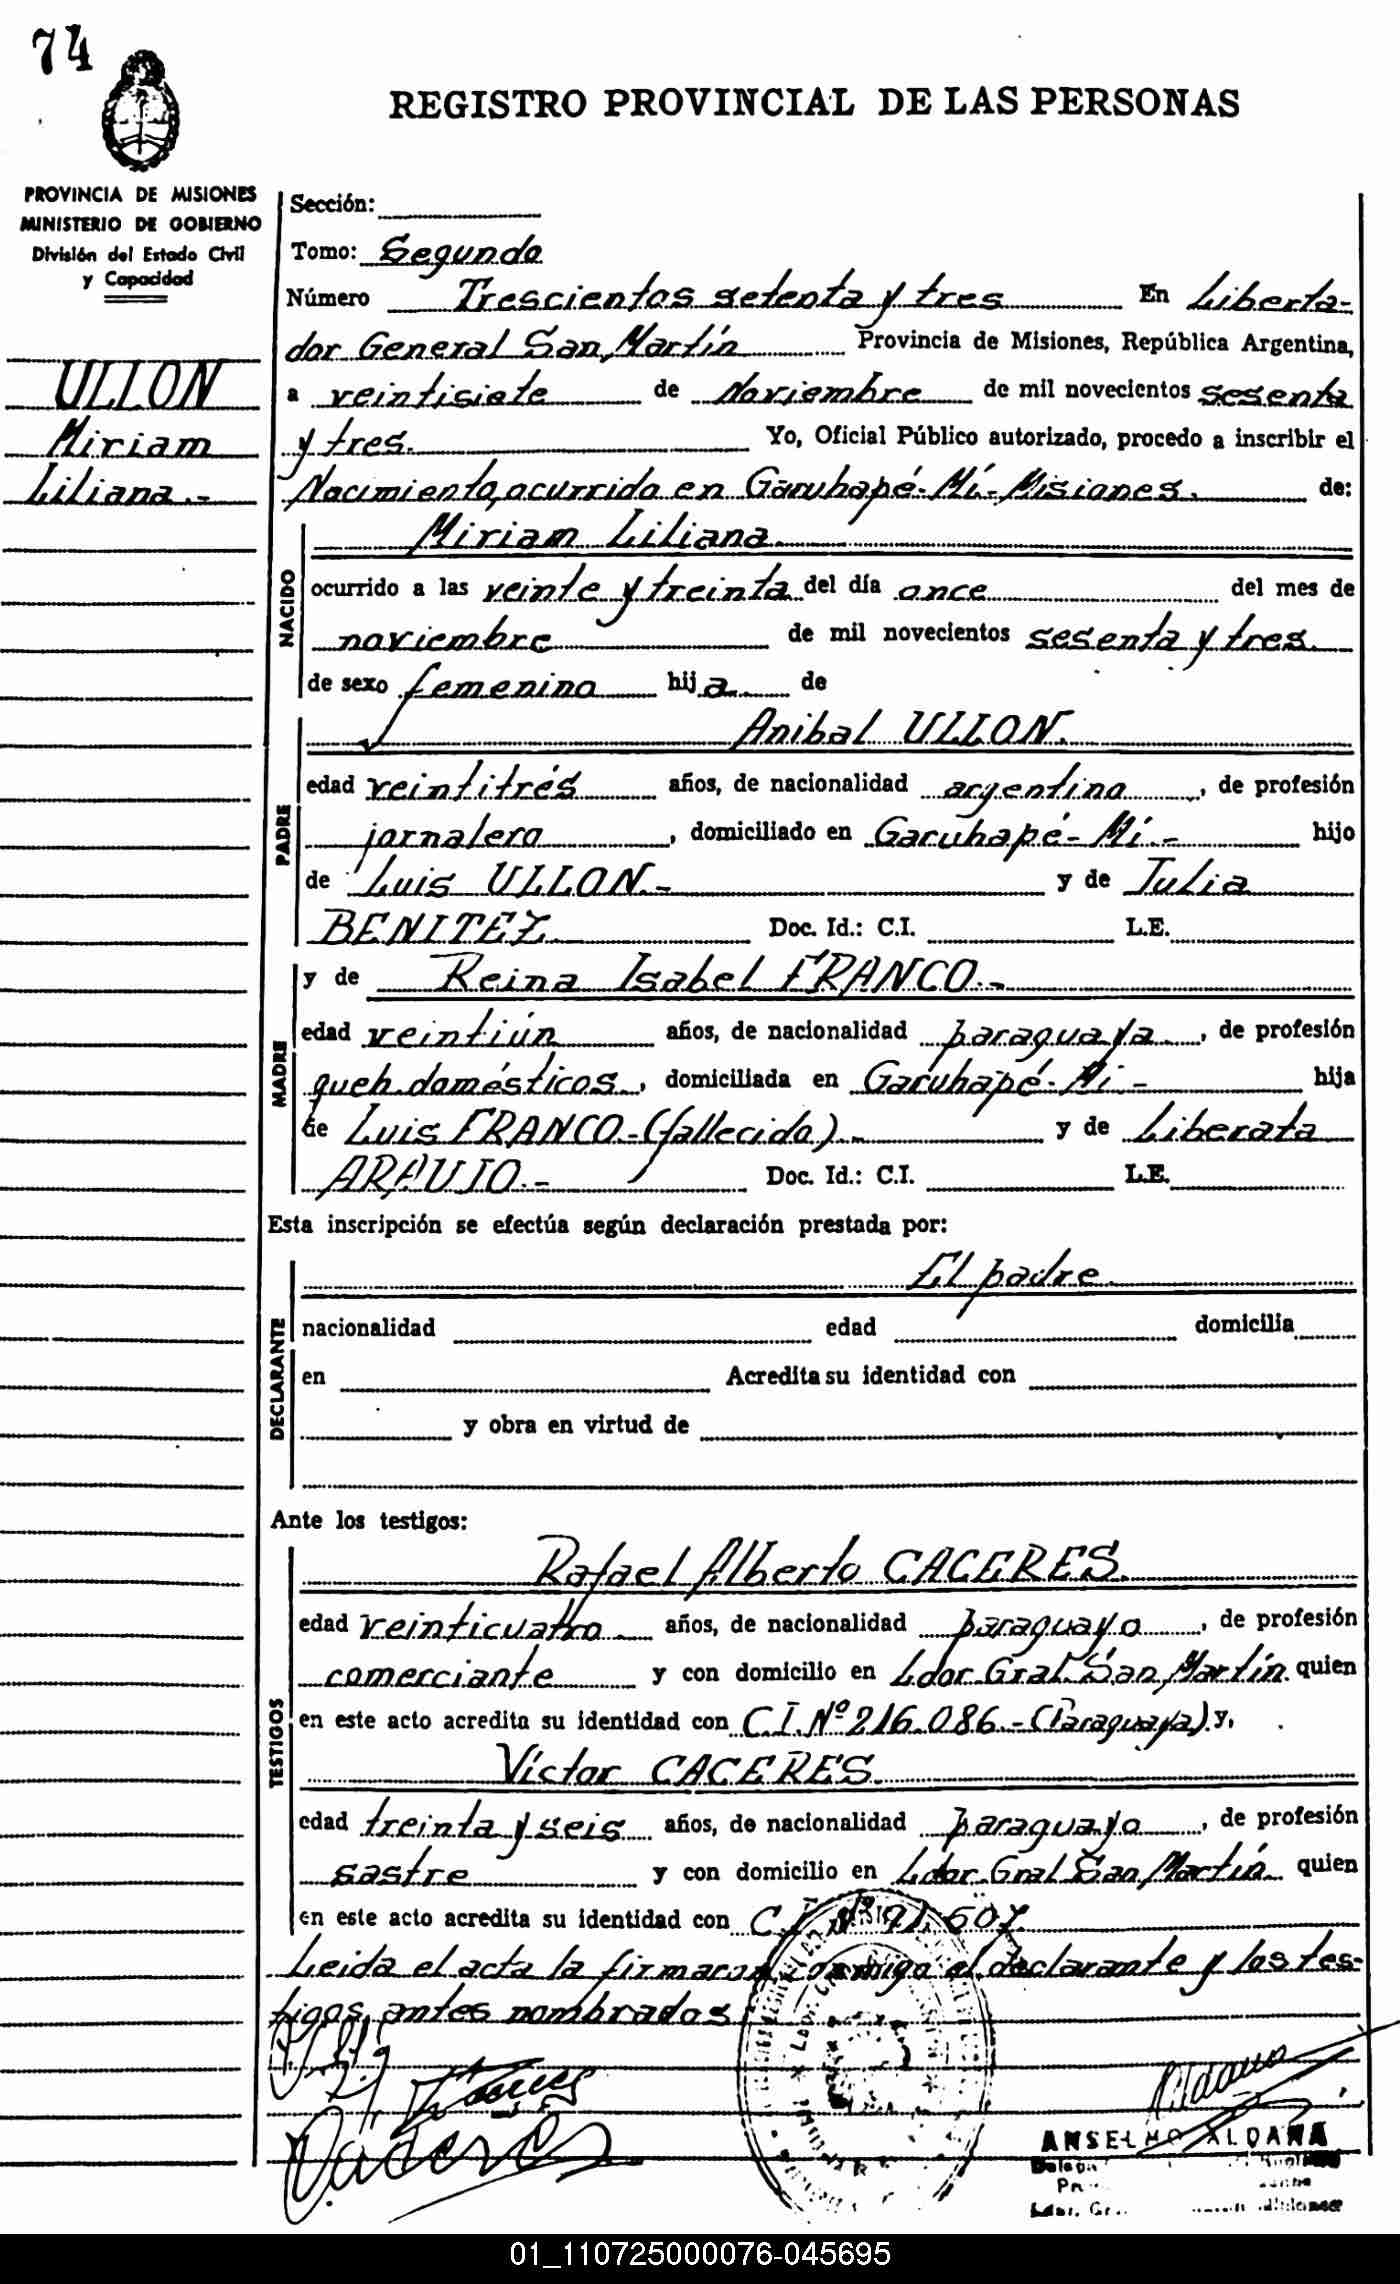 74
REGISTRO PROVINCIAL DE LAS PERSONAS
PROVINCIA DE MISIONES
MINISTERIO DE GOBIERNO
División del Estado Civil
y Capacidad
ULLON
Miriam
Liliana.-
Sección:
Tomo: Segundo
Número Trescientos setenta y tres En Liberta-
dor General San Martín Provincia de Misiones, República Argentina,
a veintisiete de Noviembre de mil novecientos sesenta
y tres. Yo, Oficial Público autorizado, procedo a inscribir el
Nacimiento, ocurrido en Garuhapé-Mí-Misiones. de:
NACIDO
Miriam Liliana.
ocurrido a las veinte y treinta del día once del mes de
noviembre de mil novecientos sesenta y tres.
de sexo femenino hija de
PADRE
Anibal ULLON.
edad veintitrés años, de nacionalidad argentina, de profesión
jornalero, domiciliado en Garuhapé-Mí.- hijo
de Luis ULLON.- y de Julia
BENITEZ. Doc. Id.: C.I. L.E.
MADRE
y de Reina Isabel FRANCO.-
edad veintiún años, de nacionalidad paraguaya., de profesión
queh. domésticos., domiciliada en Garuhapé-Mí- hija
de Luis FRANCO.-(fallecido).- y de Liberata
ARAUJO.- Doc. Id.: C.I. L.E.
Esta inscripción se efectúa según declaración prestada por:
DECLARANTE
El padre.
nacionalidad edad domicilia
en Acredita su identidad con
y obra en virtud de
Ante los testigos:
TESTIGOS
Rafael Alberto CACERES.
edad veinticuatro años, de nacionalidad paraguayo, de profesión
comerciante y con domicilio en Ldor. Gral. San Martín. quien
en este acto acredita su identidad con C.I. Nº 216.086.-(Paraguaya) y,
Víctor CACERES.
edad treinta y seis años, de nacionalidad paraguayo, de profesión
sastre y con domicilio en Ldor. Gral San Martín. quien
en este acto acredita su identidad con C.I. Nº 91.507.
Leida el acta la firmaron conmigo el declarante y los tes-
tigos antes nombrados
Caceres
Aldana
ANSELMO ALDANA
01_110725000076-045695